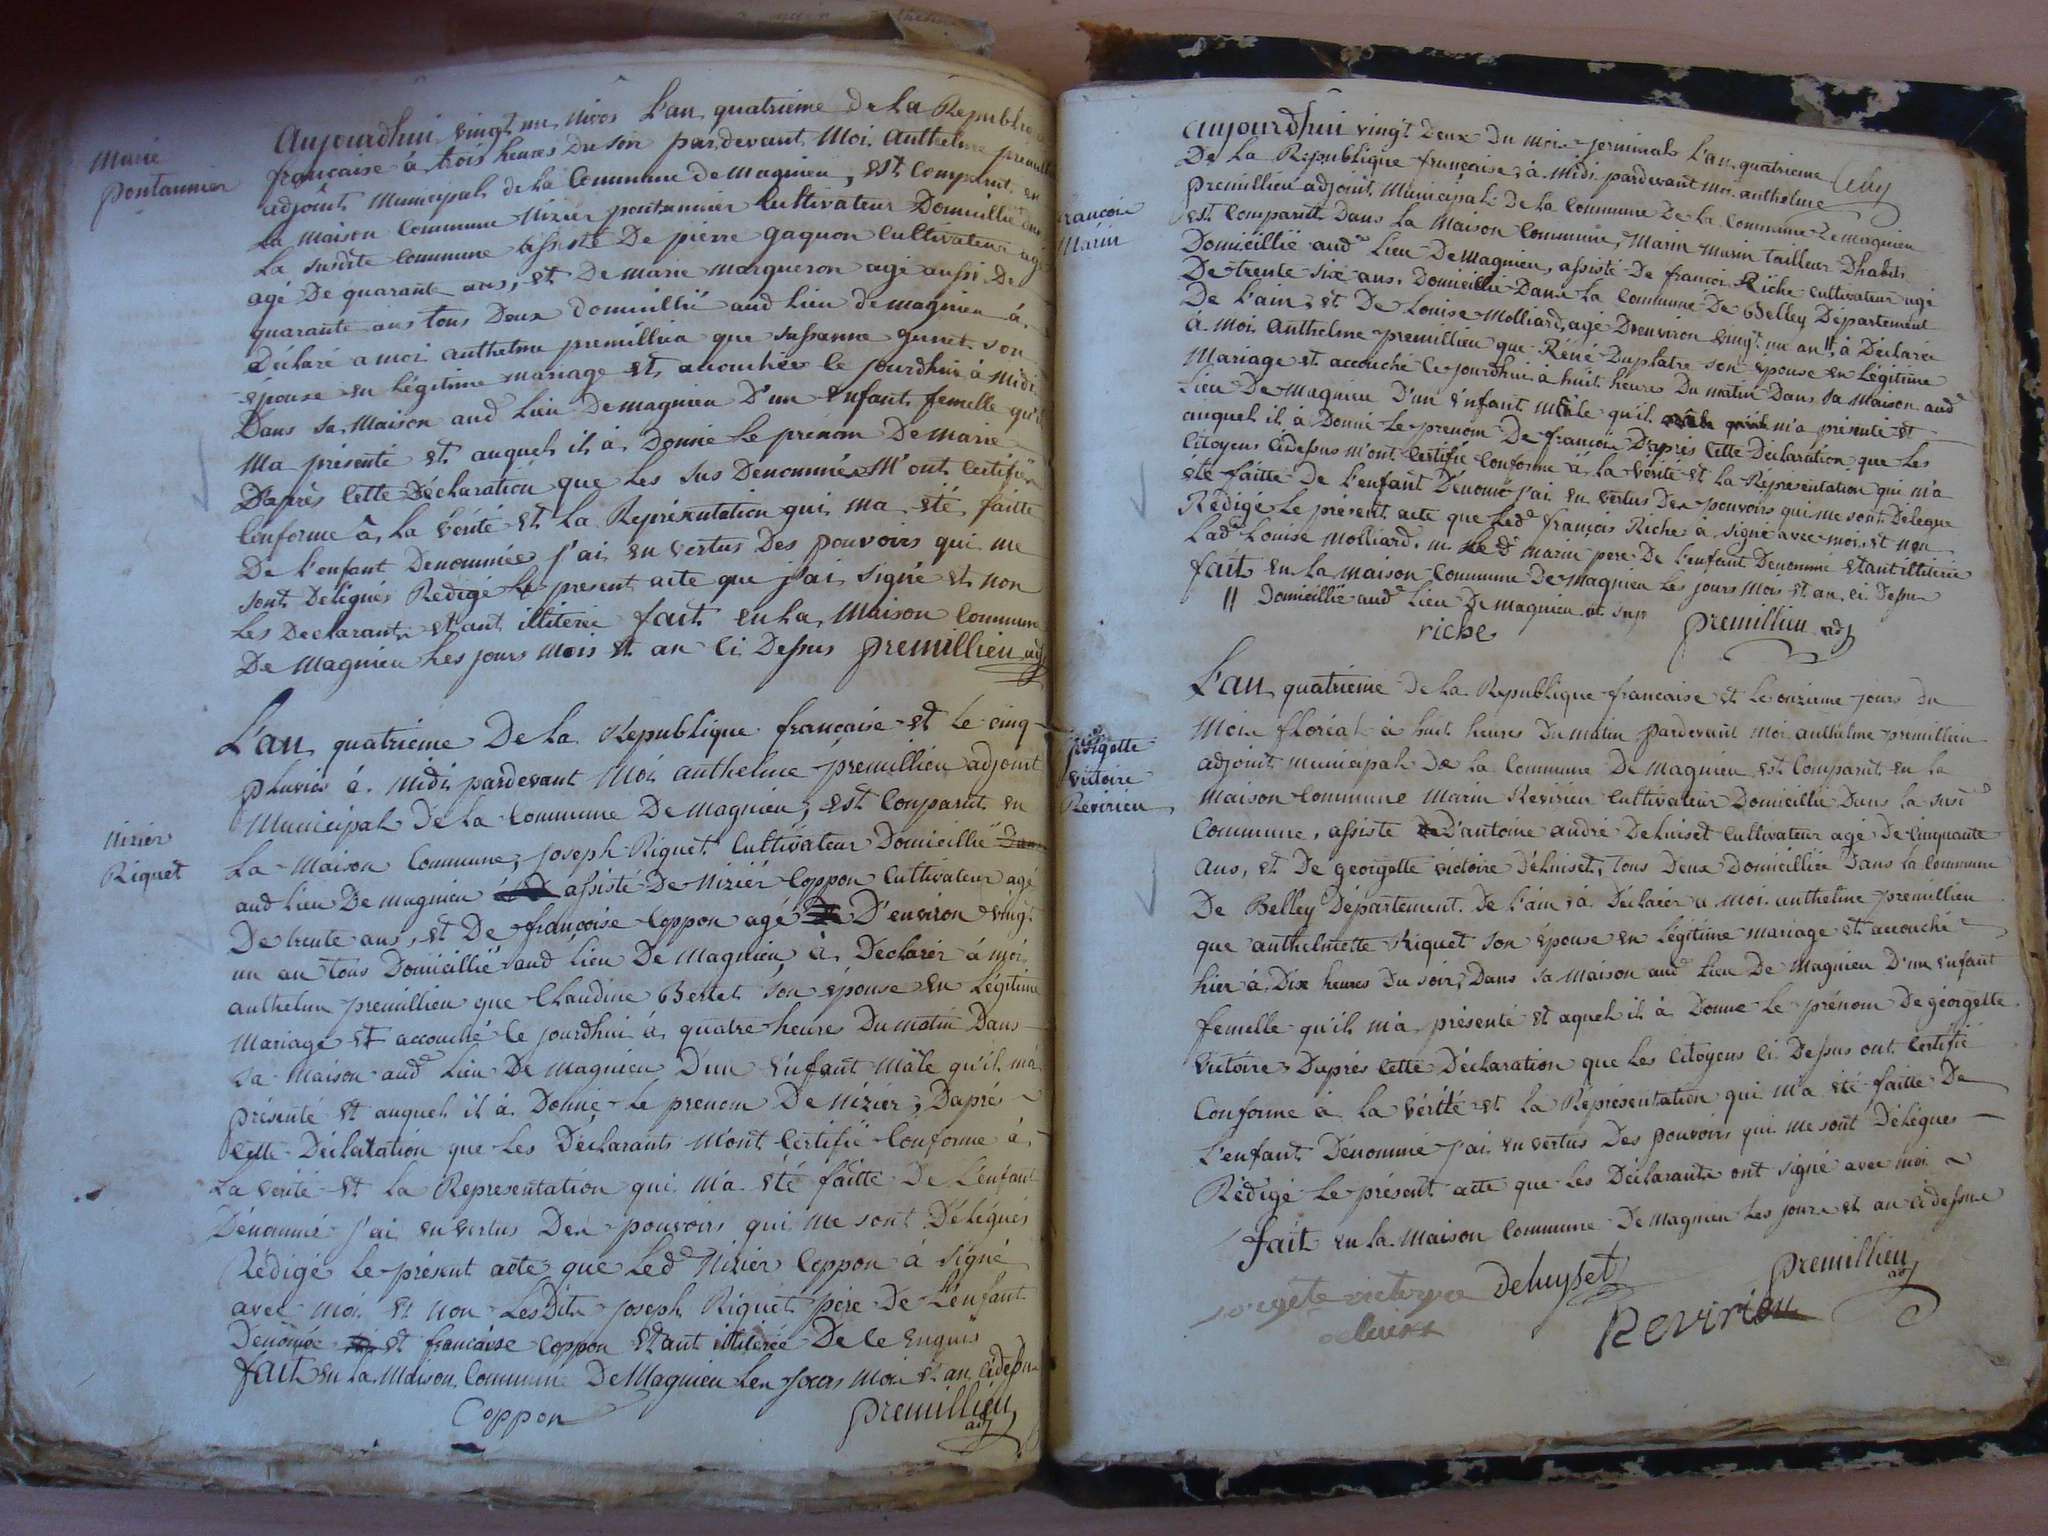 Marie
pontannier
Aujourdhui vingt un nivôs L'an quatrieme De La Republique
française à trois heures du soir pardevant Moi Anthelme premillieu
adjoint Municipal de la Commune De magnieu, est Comparut en
La maison Commune Nizier pontannier Cultivateur Domicillié dans
La susdite commune assisté De pierre gagnon Cultivateur agé
agé De quarante ans, et De marie marqueron agé aussi De
quarante ans tous Deux domicillié aud Lieu de magnieu à
Déclaré a moi anthelme premillieu que susanne gunet son
épouse en Légitime mariage et, accouchée le jourdhui à Midi
Dans sa Maison aud Lieu Demagnieu D'un Enfant femelle qu'il
Ma présenté et auquel il à Donné Le prénom De marie
D'après Cette Déclaration que Les sus Denommés M'ont Certifié
Conforme à La vérité et La Représentation qui ma été faitte
De L'enfant Denommée j'ai en vertus Des pouvoirs qui me
sont Délégués Redigé Le present acte que j'ai signé et non
Les Declarants étant illiteré fait en La Maison Commune
De Magnieu Les jours Mois et an Ci Dessus premillieu adj
Nizier
Riquet
L'an quatrieme De La Republique française et Le cinq
pluvios à Midi pardevant Moi anthelme premillieu adjoint
Municipal De La Commune De magnieu, est Comparut en
La Maison Commune, joseph Riquet Cultivateur Domicillié
aud Lieu De magnieu assisté De Nizier Coppon Cultivateur agé
De trente ans, et De françoise Coppon agé D'environ vingt
un an tous Domicillié aud Lieu De magnieu à Declarér à moi
anthelme premillieu que Claudine Bertet son épouse en Légitime
Mariage et accouché le jourdhui à quatre heures Du matin Dans
sa maison aud Lieu De Magnieu D'un Enfant Mâle qu'il m'a
présenté et auquel il à Donné Le prenom De Nizier, D'aprés
Cette Déclaration que Les Déclarants M'ont Certifié Conforme à
La verité et La Representation qui m'a été faitte De L'enfant
Dénommé j'ai en vertus Des pouvoirs qui me sont Délégués
Rédigé Le présent acte que Led Nizier Coppon à signé
avec moi et non Les Dits joseph Riquet père De L'enfant
Denomée et francoise Coppon étant illiterée De ce Enquis
fait en La Maison Commune De Magnieu Les jours Mois et an Cidessus
Coppon premillieu
adj
françois
Marin
Aujourdhui vingt Deux Du Mois jerminal L'an quatrieme
De La Republique française, à Midi pardevant moi anthelme
premillieu adjoint Municipal De La Commune De La Commune De magnieu
est Comparut Dans La Maison Commune, Marin Marin tailleur Dhabits
Domicillié aud Lieu De Magnieu, assisté De françois Riche Cultivateur agé
De trente six ans, Domicillié Dans La Commune De Belley Département
De L'ain, et De Louise Molliard, agé D'environ vingt un an // à Déclarér
à Moi Anthelme premillieu que Réné Duplatre son épouse en Légitime
Mariage et accouché le jourdhui à huit heures Du matin Dans sa Maison aud
Lieu De Magnieu D'un Enfant Mâle qu'il m'a présenté et
auquel il à Donné Le prenom De françois D'après Cette Déclaration que Les
Citoyens Cidessus m'ont Certifié Conforme à La vérité et La Représentation qui m'a
été faitte De L'enfant Dénomé j'ai en vertus Des pouvoirs qui me sont Délégue
Rédigé Le présent acte que Led françois Riche à signé avec moi, et non
Lad Louise Molliard, ni Le d marin pere De L'enfant Denommé étant illiterée
fait en La maison Commune De Magnieu Les jours Mois et an ci Dessus
// Domicillie aud Lieu De magnieu
riche premillieu adj
georgette
victoire
Revirieu
L'an quatrieme De La Republique francaise et Le onzieme jours du
Mois floréal à huit heures Du matin pardevant Moi anthelme premillieu
adjoint municipal De La Commune De Magnieu est Comparut en La
Maison Commune Marin Revirieu Cultivateur Domicillié Dans La susd
Commune, assisté D'antoine andré Deluiset Cultivateur agé De Cinquante
ans, et De georgette victoire Déluiset, tous Deux Domicilliée Dans La Commune
De Belley Département De L'ain à Déclarér a moi anthelme premillieu
que anthelmette Riquet son épouse en Légitime mariage et accouché
hier à Dix heures Du soir Dans sa Maison aud Lieu De Magnieu D'un Enfant
femelle qu'il m'a présenté et aquel il à Donne Le prénom De georgette
victoire D'aprés Cette Déclaration que Les Citoyens Ci Dessus ont Certifié
Conforme à La vérité et La Représentation qui m'a été faitte De
L'enfant Dénommé j'ai en vertus Des pouvoirs qui me sont Délégués
Rédigé Le présent acte que Les Déclarants ont signé avec moi
fait en La Maison Commune De Magnieu Les jours et an cidessus
victoyre Deluyset premillieu
adj
Revirieu